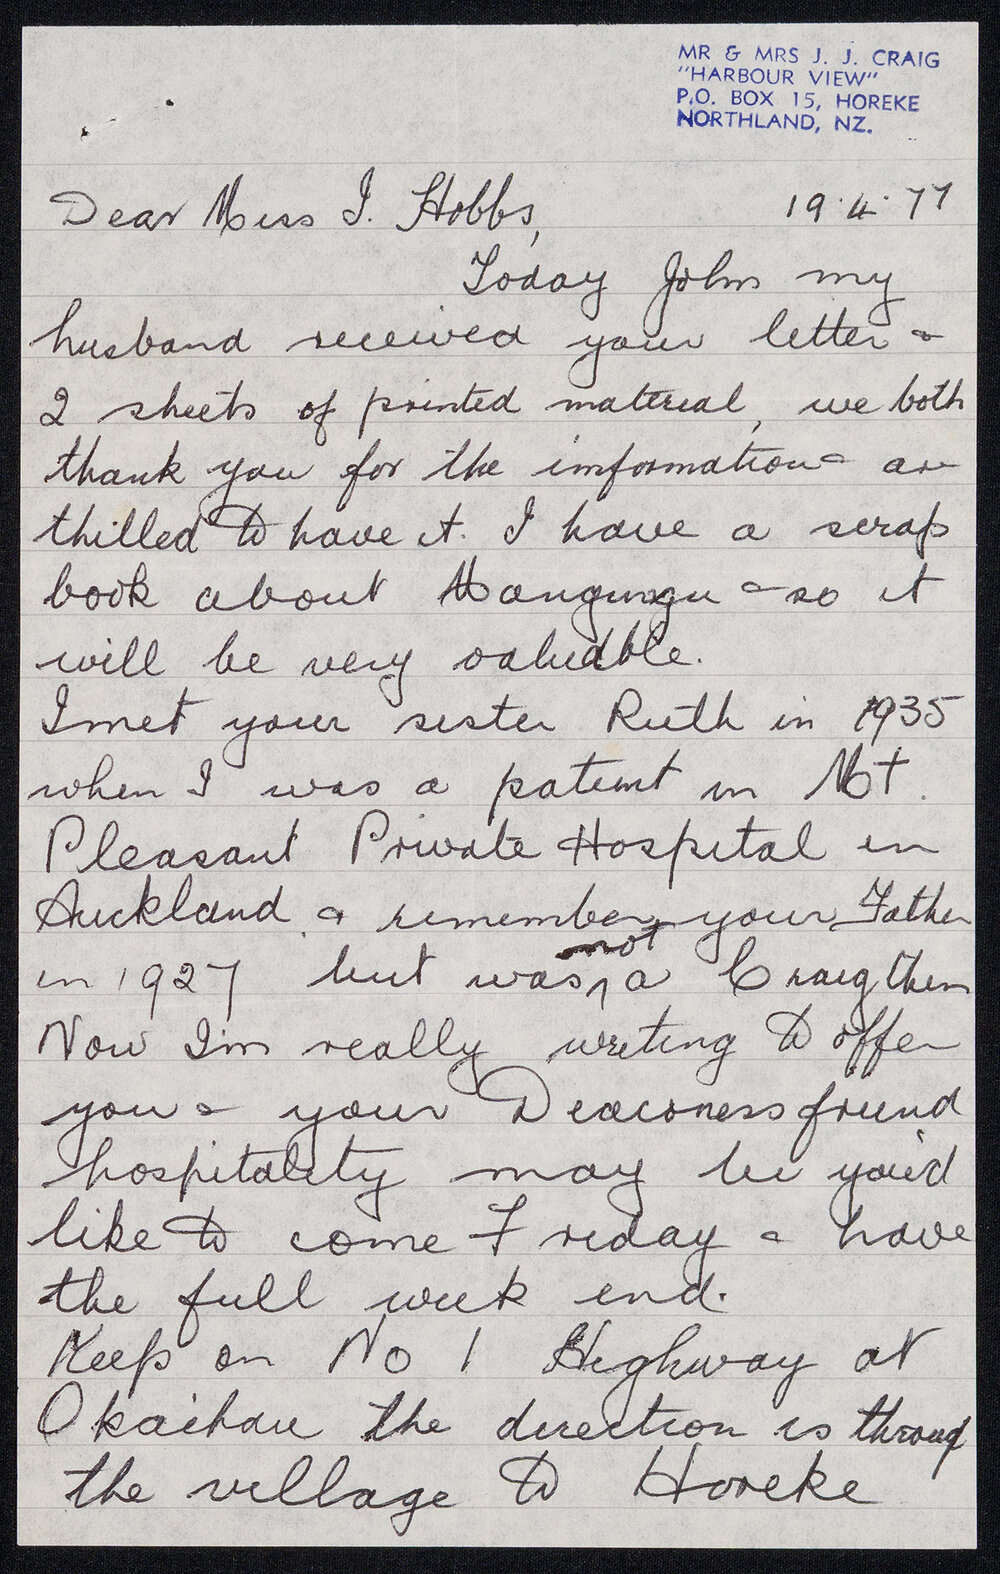 MR & MRS J. J. CRAIG
"HARBOUR VIEW"
P.O. BOX 15, HOREKE
NORTHLAND, NZ.
Dear Miss I. Hobbs, 19.4.77
Today John my
husband received your letter &
2 sheets of printed material, we both
thank you for the information & are
thilled to have it. I have a scrap
book about Mangungu & so it
will be very valuable.
I met your sister Ruth in 1935
when I was a patient in Mt.
Pleasant Private Hospital in
Auckland & remember your Father
in 1927 but was not a Craig then
Now I'm really writing to offer
you & your Deaconess friend
hospitality may be you'd
like to come Friday & have
the full week end.
Keep on No 1 Highway at
Okaihau the direction is through
the village to Horeke